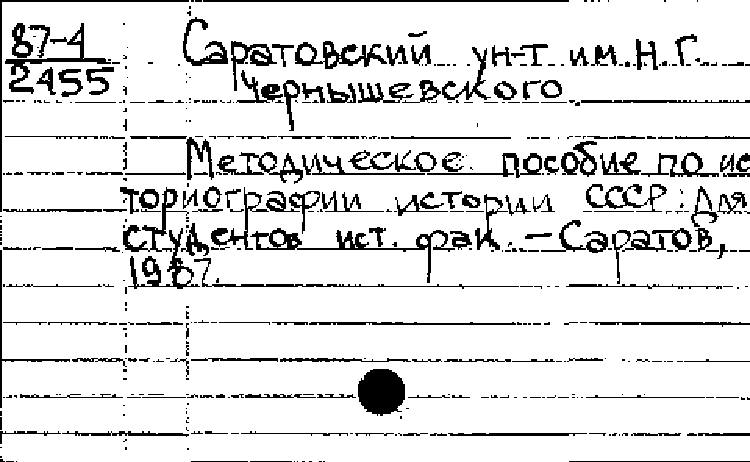 87-4
2455
Саратовский ун-т им. Н.Г.
Чернышевского
Методическое пособие по ис
ториографии истории СССР: Для
студентов ист. фак. – Саратов,
1987.